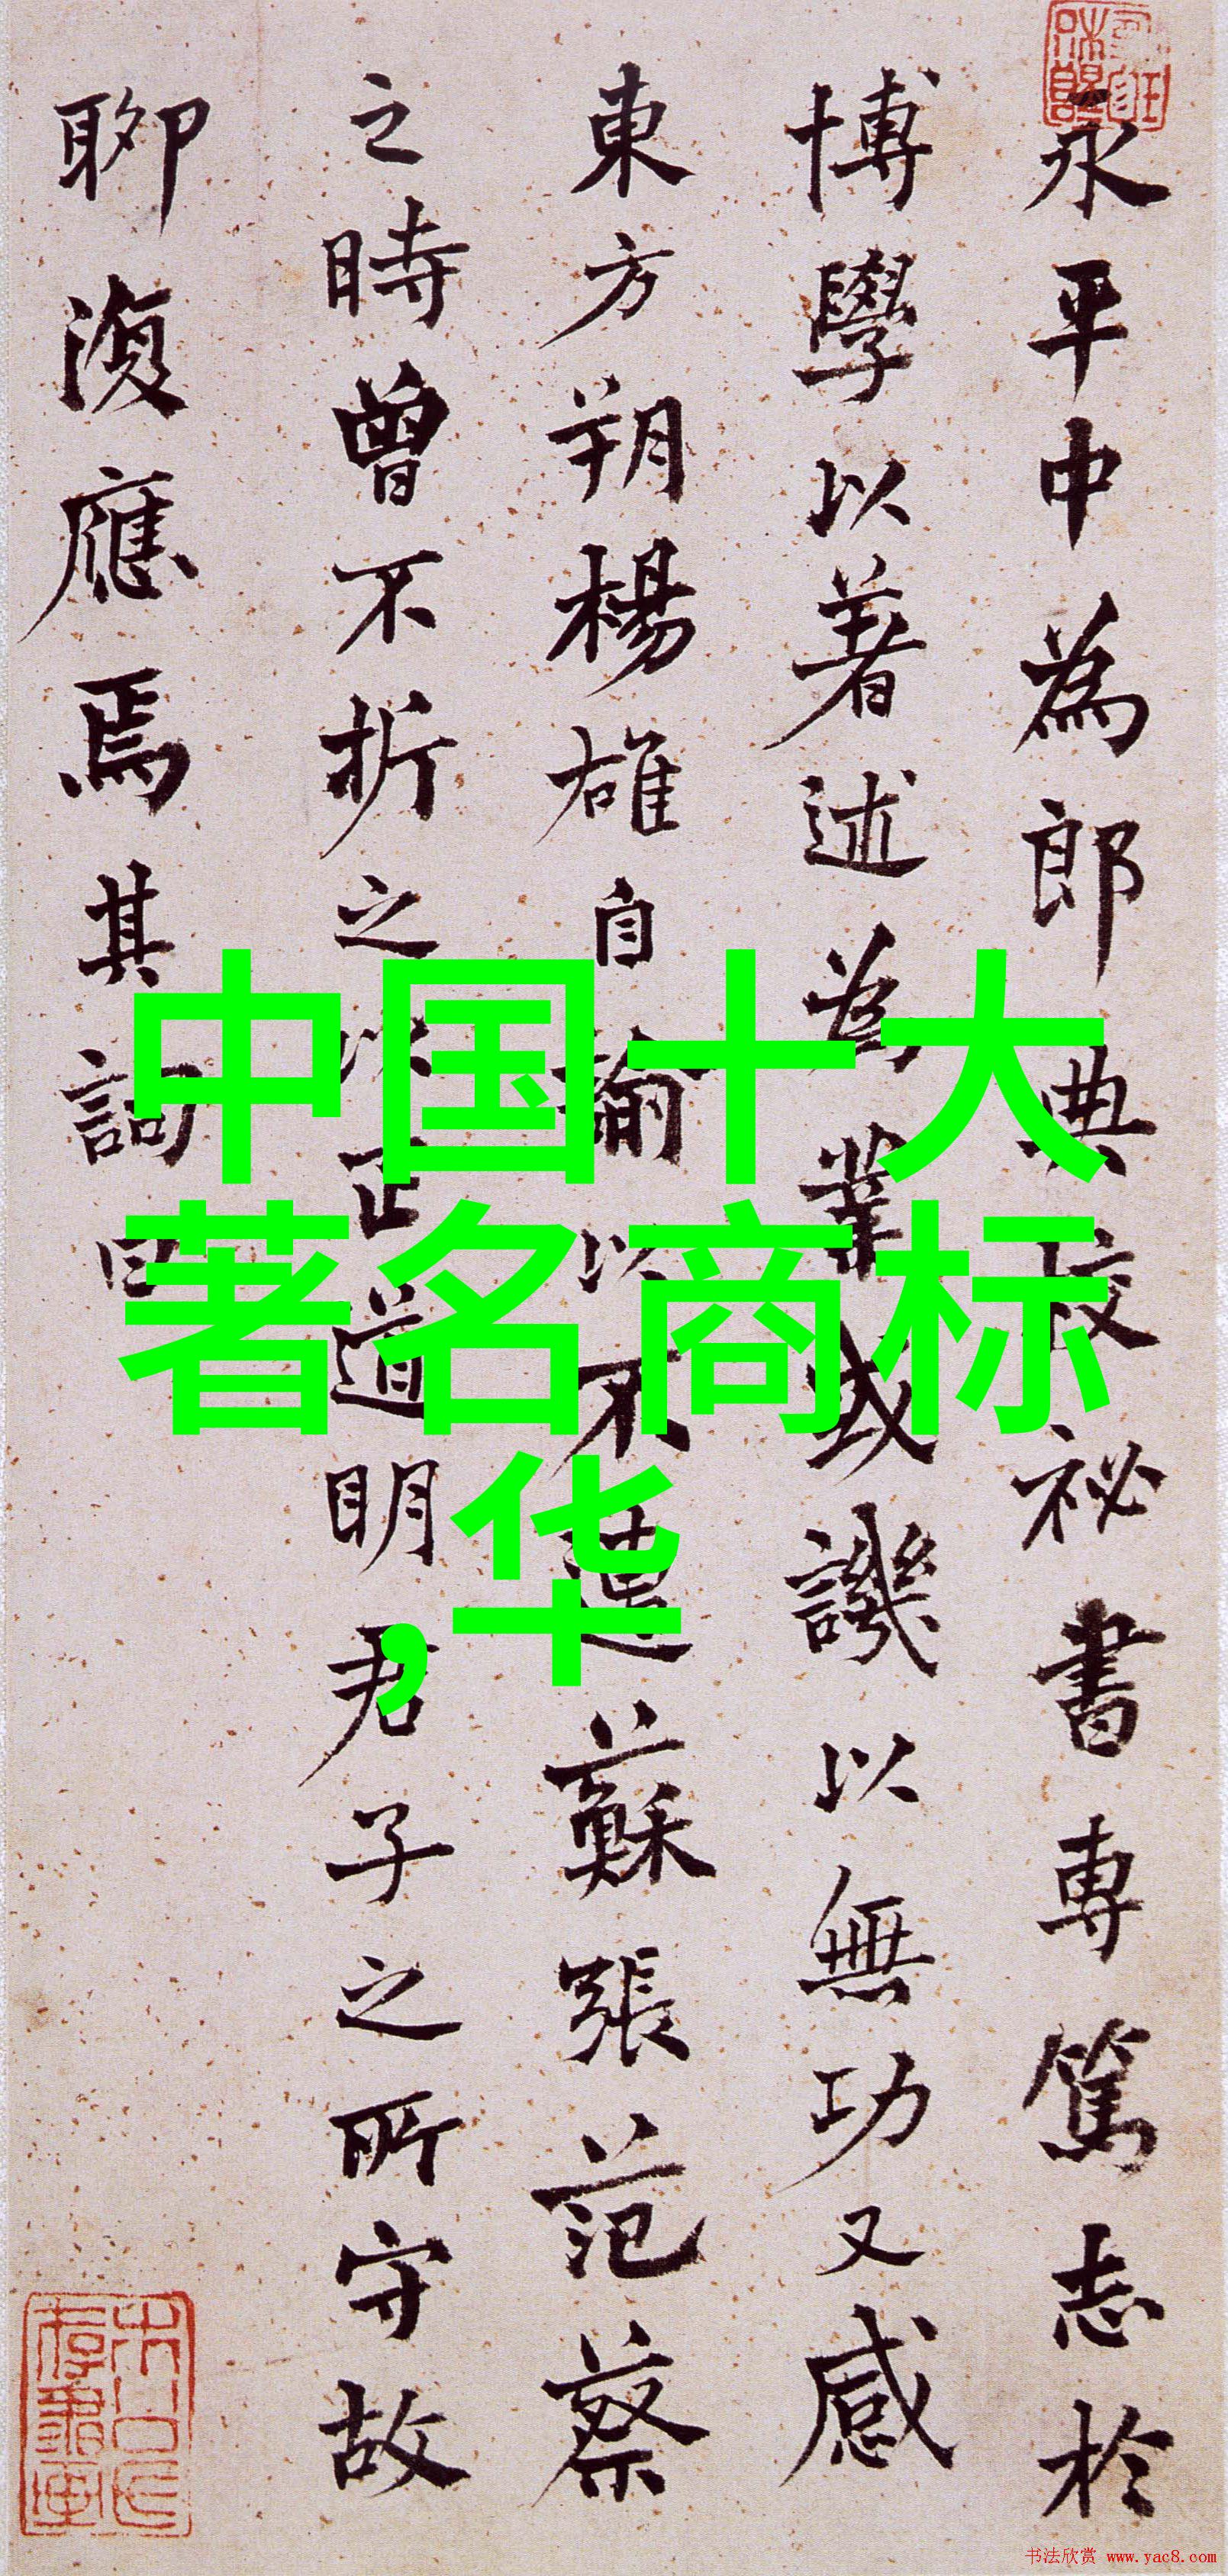 永平中為郎典校祕書專篤志於
博學以著述為業或譏以無功又感
東方朔楊雄自諭以不遭蘇張范蔡
之時曾不折之以正道明君子之所守故
聊復應焉其詞曰
中国十大
著名商标
,华
书法欣赏 www.yac8.com